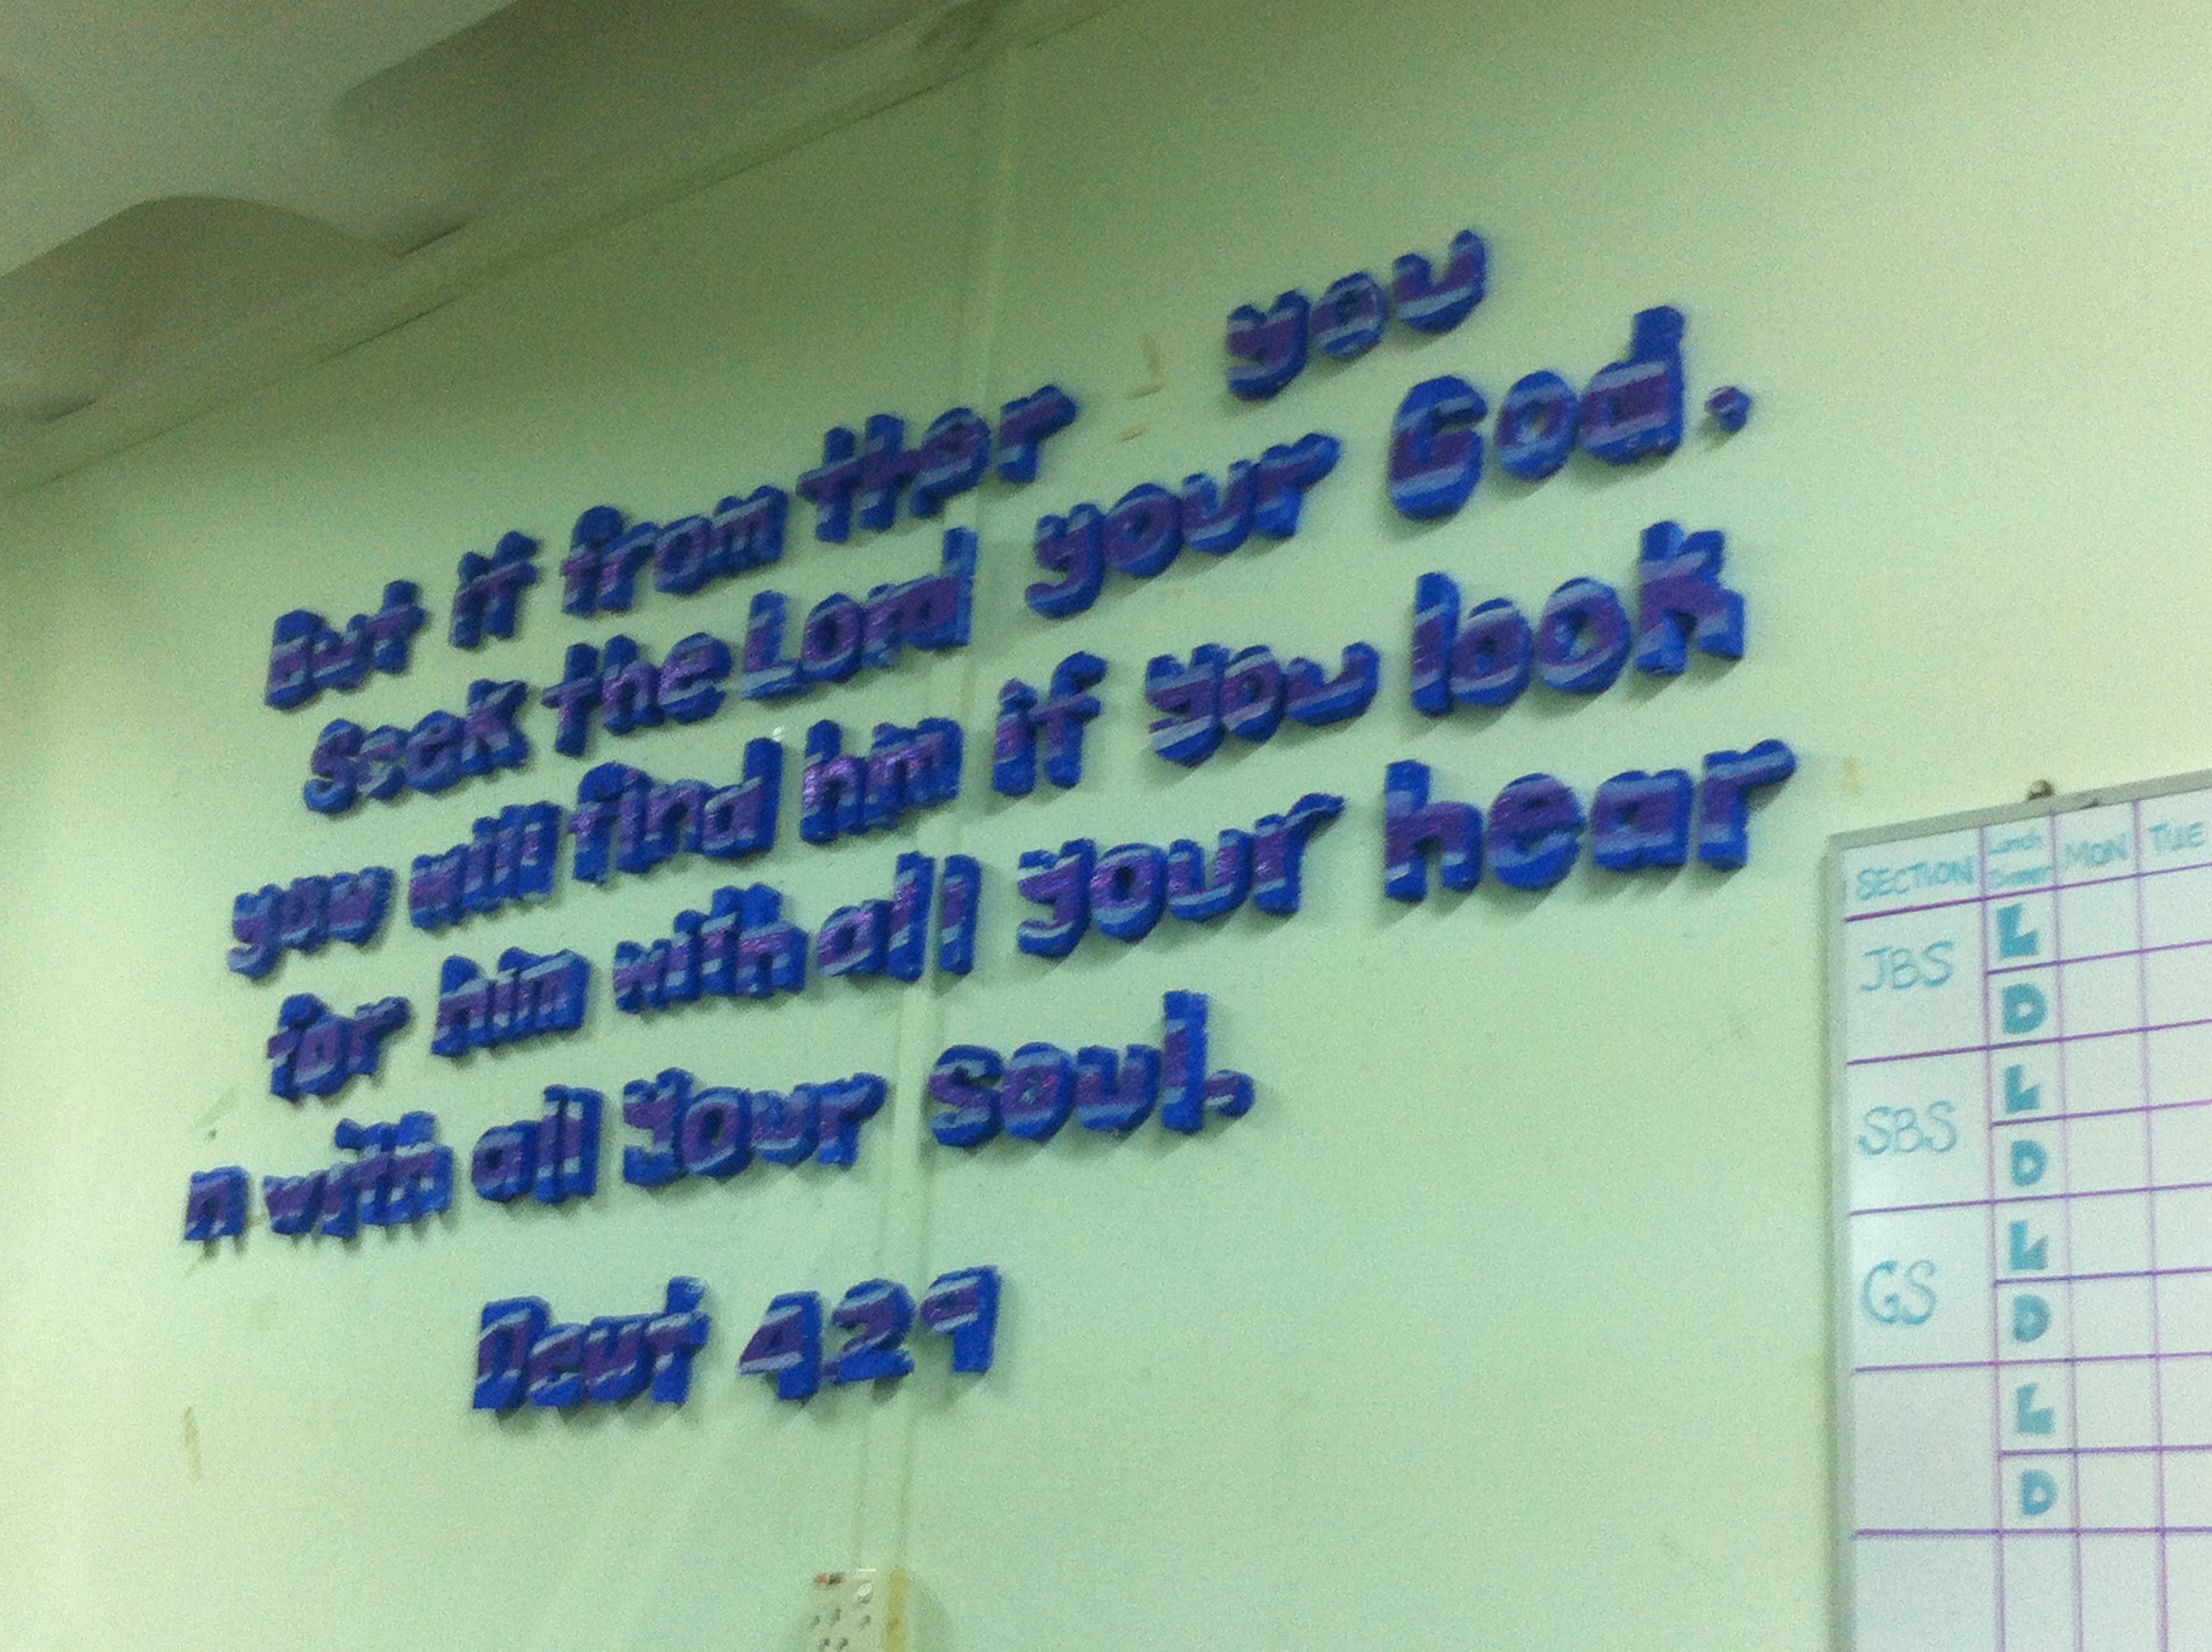 But if from ther you
Seek the Lord your God.
you will find hm if you look
for him with all your hear
n with all your soul.
Deut 4.29
SECTION Lunch Dinner MON TUE
JBS L
D
SBS L
D
GS L
D
L
D